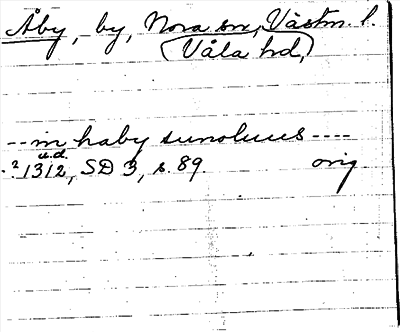 Åby, by, Nora sn, Västm. l.
(Våla hd,)
-- in haby sunoluus ----
u.d.
.?1312, SD 3, s. 89. orig